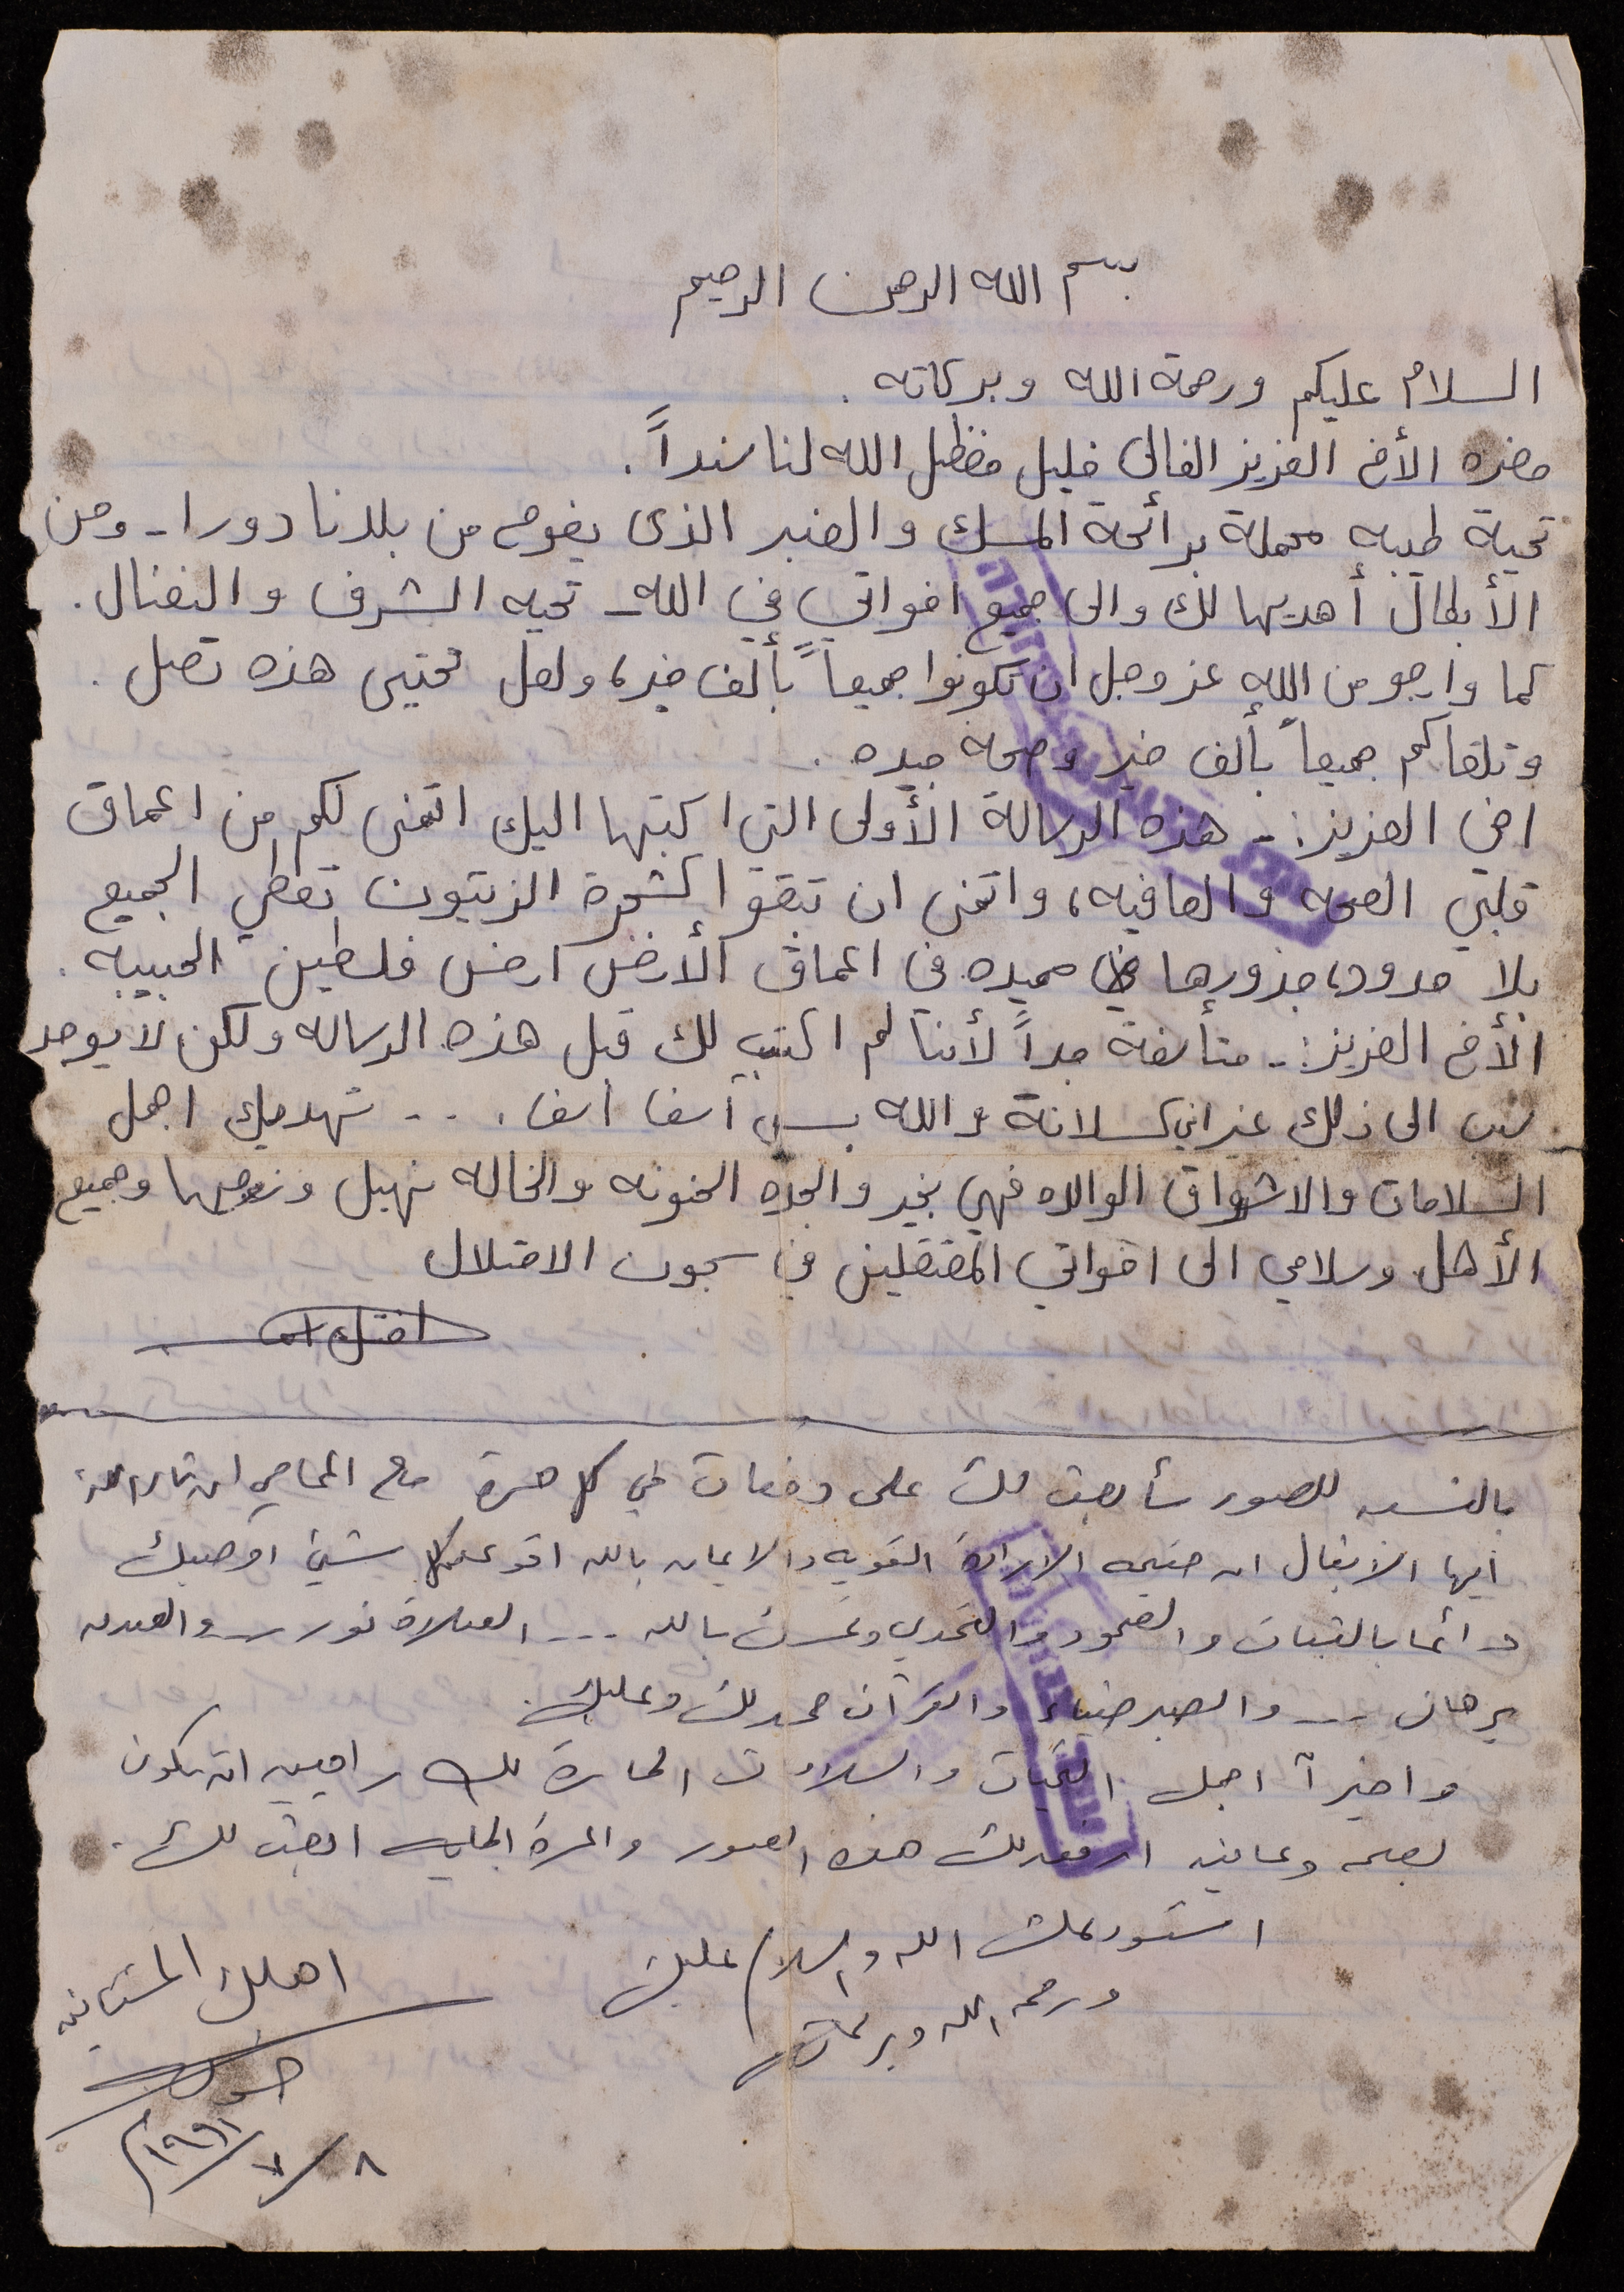 بسم الله الرحمن الرحيم
السلام عليكم ورحمة الله وبركاته .
حضره الأخ العزيز الغالي خليل حفظك الله لنا سنداً .
تحية طيبه محملة برائحة المسك والعنبر الذى يفوح من بلدنا دورا - ومن
الأبطال أهديها لك والى جميع اخواتي في الله - تحيه الشرف والنضال .
كما وارجو من الله عز وجل ان تكونوا جميعاً بألف خير، ولعل تحتيى هذه تصل .
وتلقاكم جميعاً بألف خير وصحه جيده .
اخى العزيز :- هذه الرسالة الأولى التي اكتبها اليك اتمنى لكم من اعماق
قلبي الصحه والعافيه، واتمنى ان تبقوا كشجرة الزيتون تعطي الجميع
بلا حدود، جذورها في اعماق الأرض ارض فلسطين الحبيبه .
الأخ العزيز :- متأسفة جداً لأننا لم اكتب لك قبل هذه الرساله ولكن لا يوجد
سبب الى ذلك غير اني كسلانة والله بس آسفا اسفا . . . تهديك اجمل
السلامات والاشواق الوالده فهي بخير والجده الحنونه والخاله نهيل وزوجها وجميع
الأهل وسلامي الى اخواتي المعتقلين في سجون الاحتلال
اختك
بالنسبه للصور سأبعث لك على دفعات في كل مرة مع المحامي ان شاء الله
ايها الابطال ان الارادة القويه والايمان بالله اقوى كل شيئ اوصيك
دائما بالثبات والصمود والتحدي بالله --- الصلاة نور والصدقه
برهان --- والصبر ضياء والقرآن حجه لك وعليك .
واخيرآ اجمل التحيات والسلامات الحارة لك راجين ان تكون
بصحه وعافيه ارفقه لك هذه الصور والمرة الجايه ابعث لك .
استودعك الله والسلام عليك
ورحمه الله وبركاته
اهلك المشتاقين
٨/٧/١٩٩١